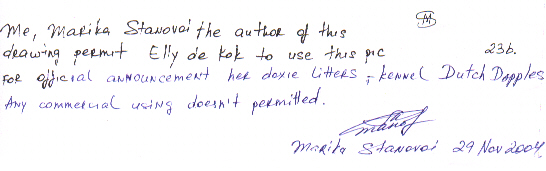 Me, Marika Stanovoi the author of this
drawing permit Elly de Kok to use this pic 236.
FOR official announcement her doxie litters, - kennel Dutch Dapples
Any commercial using doesn't permitted.
Marika Stanovoi 29 Nov 2004